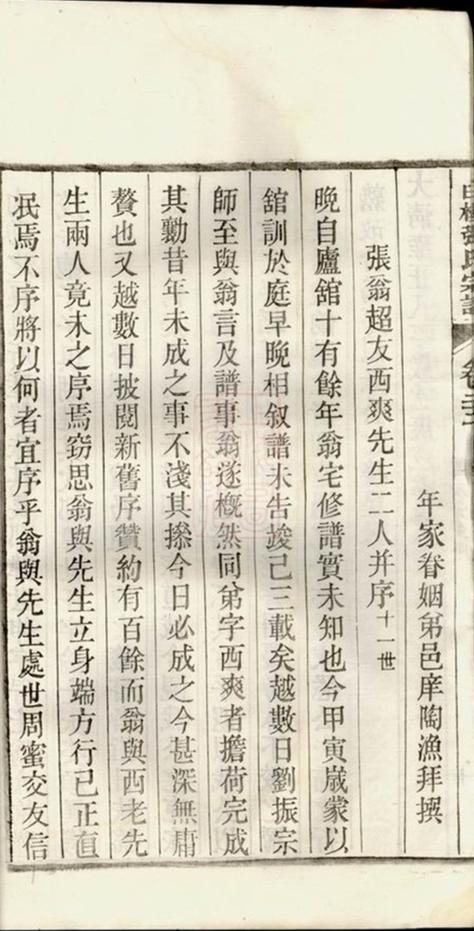 年家眷姻弟邑庠陶漁拜撰
張翁超友西爽先生二人并序十一世
晚自廬舘十有餘年翁宅修譜實未知也今甲寅歲蒙以
舘訓於庭早晚相叙譜未告竣己三載矣越數日劉振宗
師至與翁言及譜事翁遂概然同弟字西爽者擔荷完成
其勷昔年未成之事不淺其摻今日必成之今甚深無庸
贅也又越數日披閱新舊序贊約有百餘而翁與西老先
生兩人竟未之序焉窃思翁與先生立身端方行己正直
冺焉不序將以何者宜序乎翁與先生處世周蜜交友信